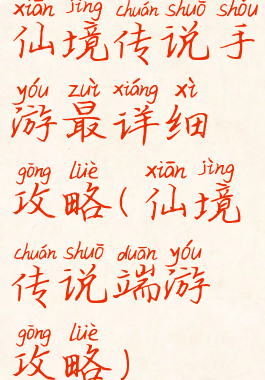 xiān jìng chuán shuō shǒu
仙境传说手
yóu zuì xiáng xì
游最详细
gōng lüè xiān jìng
攻略(仙境
chuán shuō duān yóu
传说端游
gōng lüè
攻略)